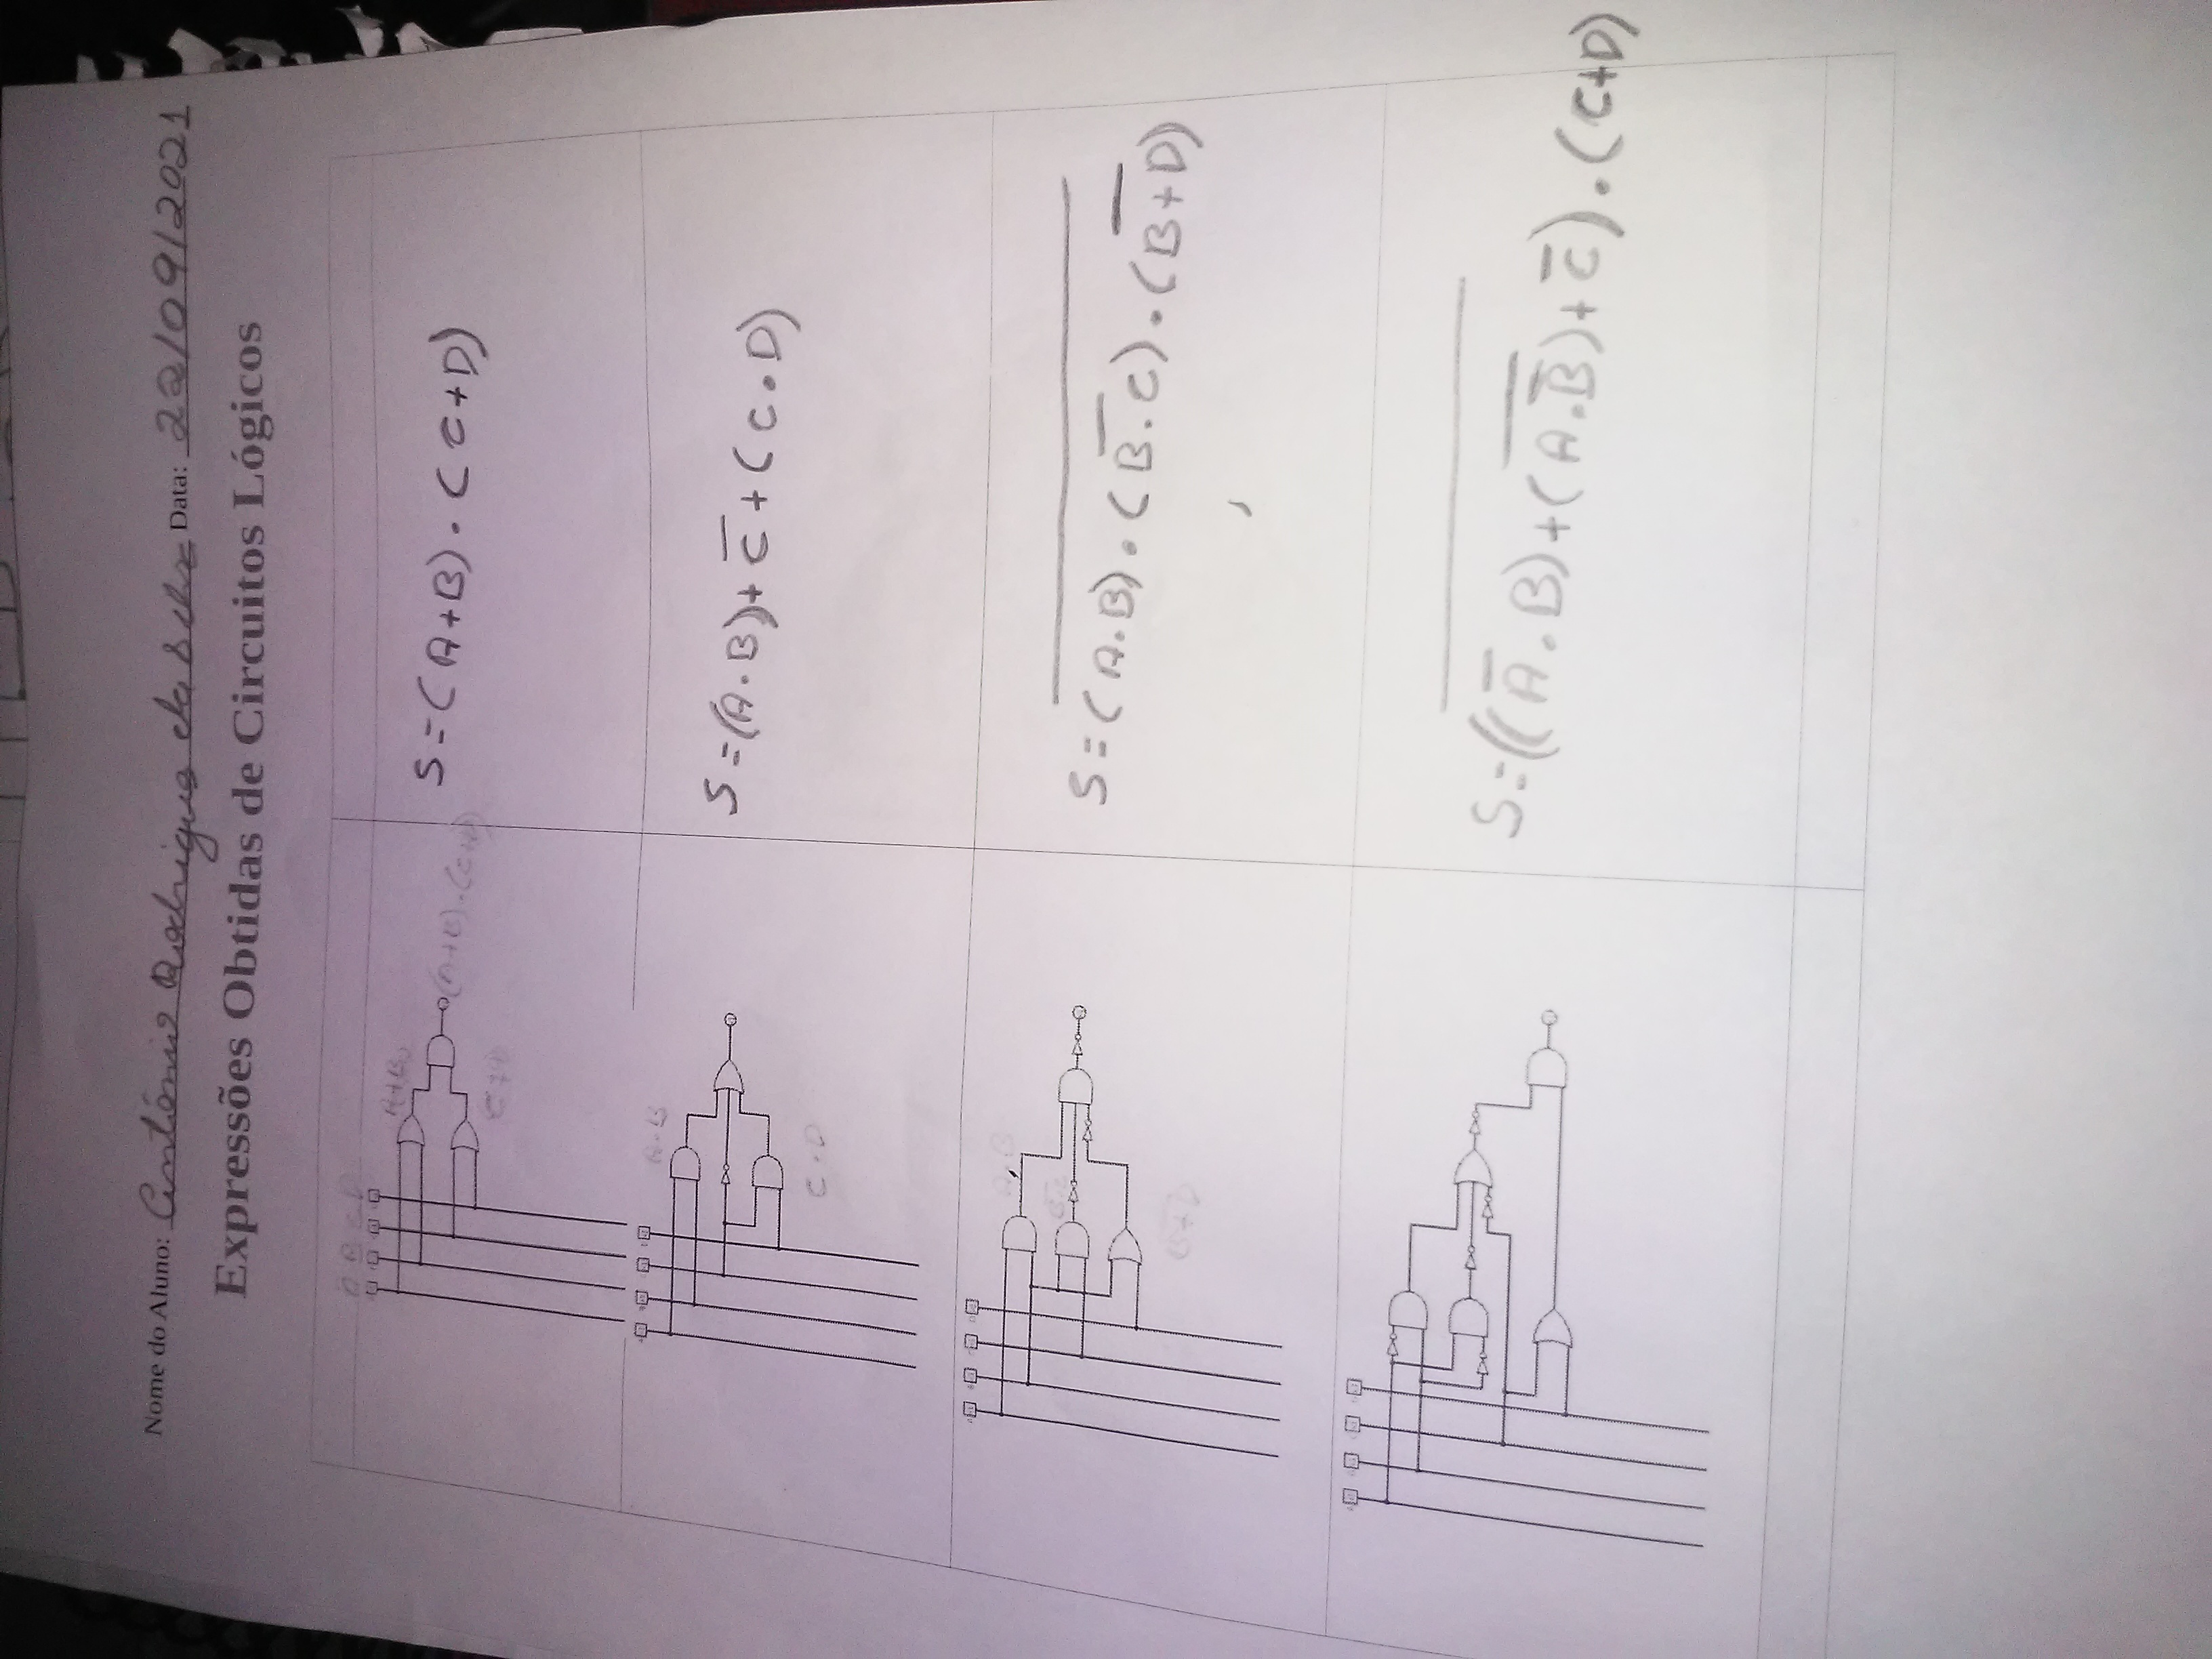 Nome do Aluno: Antônio Rodrigues da Silva Data: 22/09/2021
Expressões Obtidas de Circuitos Lógicos
A B C D
A+B
(A+B).(C+D)
C+D
S=(A+B).(C+D)
A.B
C.D
S=(A.B)+C̅+(C.D)
A.B
B.C
B+D
S=\overline{(A.B).(\overline{B.C}).(\overline{B+D})}
S=(\overline{(A̅.B)+(\overline{A.B̅})+C̅}).(C+D)